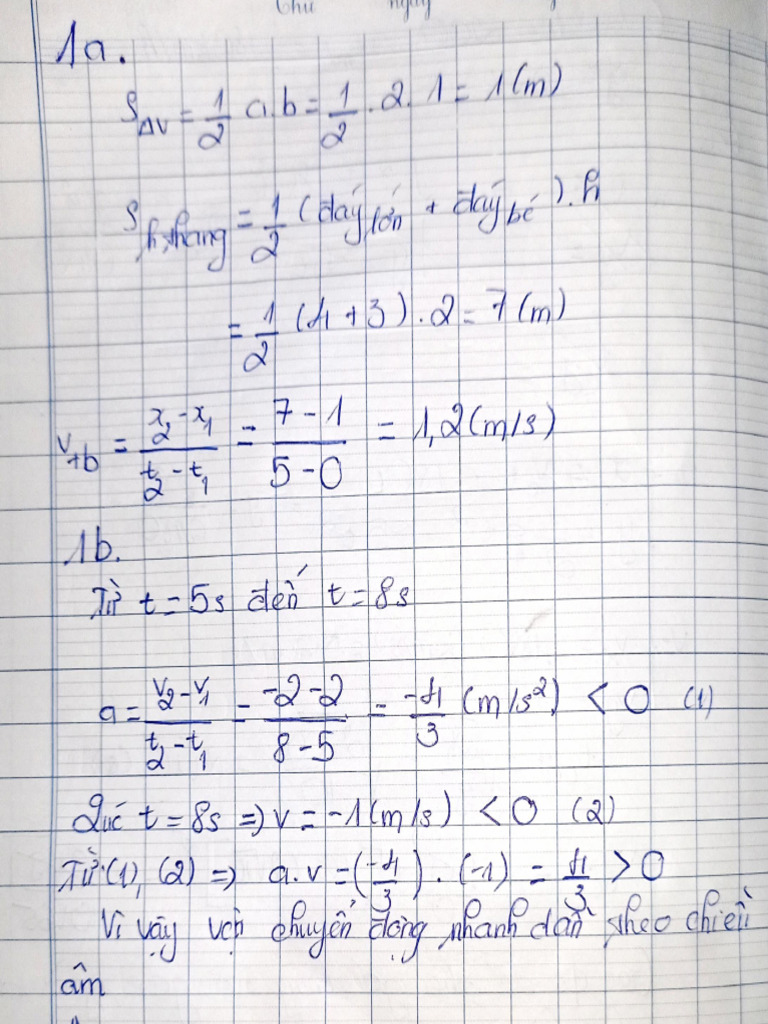 Thứ ngày
1a.
S△v = 1/2 a.b = 1/2 . 2. 1 = 1 (m)
Sh.thang = 1/2 (đáy lớn + đáy bé). h
= 1/2 (4 + 3). 2 = 7 (m)
vtb = (x2 - x1)/(t2 - t1) = (7 - 1)/(5 - 0) = 1,2 (m/s)
1b.
Từ t = 5s đến t = 8s
a = (v2 - v1)/(t2 - t1) = (-2 - 2)/(8 - 5) = -4/3 (m/s²) < 0 (1)
Lúc t = 8s => v = -1 (m/s) < 0 (2)
Từ (1), (2) => a.v = (-4/3) . (-1) = 4/3 > 0
Vì vậy vật chuyển động nhanh dần theo chiều
âm